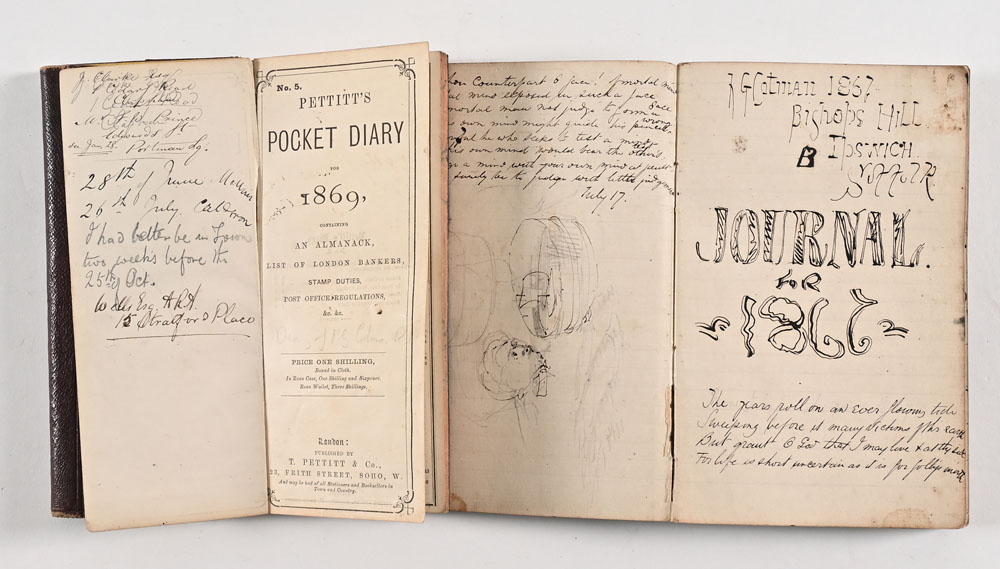 J. Clarke Esq
Road
Mr
Edwards
on Jan 28. Portman Sq.
28th of June
26th July Calderon
I had better be in Town
two weeks before the
25th Oct.
Wells Esq. A.R.A.
15 Stratford Place
No. 5.
PETTITT'S
POCKET DIARY
FOR
1869,
CONTAINING
AN ALMANACK,
LIST OF LONDON BANKERS,
STAMP DUTIES,
POST OFFICE REGULATIONS,
&c. &c.
PRICE ONE SHILLING,
Bound in Cloth.
In Roan Case, One Shilling and Sixpence.
Roan Wallet, Three Shillings.
London:
PUBLISHED BY
T. PETTITT & Co.,
23, FRITH STREET, SOHO, W.
And may be had of all Stationers and Booksellers in
Town and Country.
Counterpart O face! If mortal mind
mind exposed in such a face
mortal man not judge to form a face
own mind might guide his wrong pencil
he who seeks to test a
his own mind would bear the other's
a mind with your own mind at
surely be to judge with little judgment
July 17.
F G Cotman 1867
Bishops Hill
Ipswich
Suffolk
JOURNAL.
FOR
1867
The years roll on an ever flowing tide
Sweeping before it many victims of this earth
But grant O God that I may live &amp; at thy side
For life is short uncertain as it is for